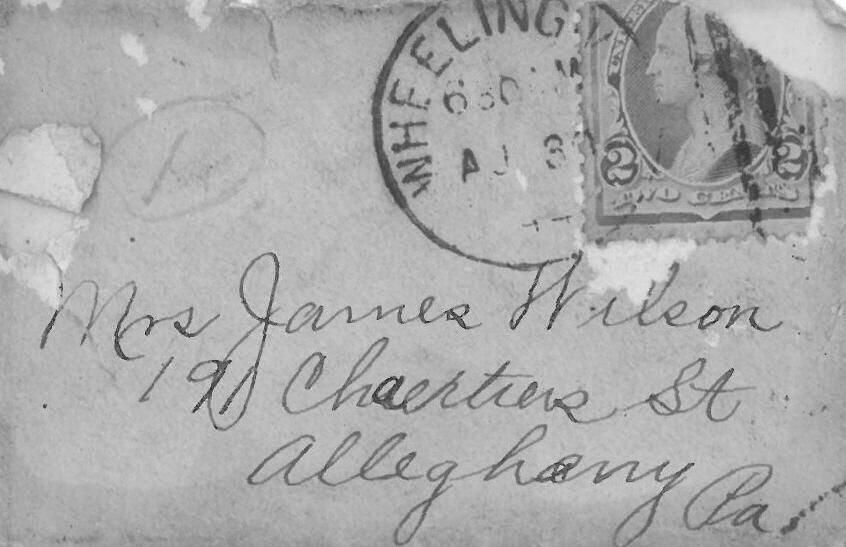 WHEELING
630 M
AU 3
2 2
TWO CENTS
Mrs James Wilson
191 Chaertiers St
Alleghany
Pa.